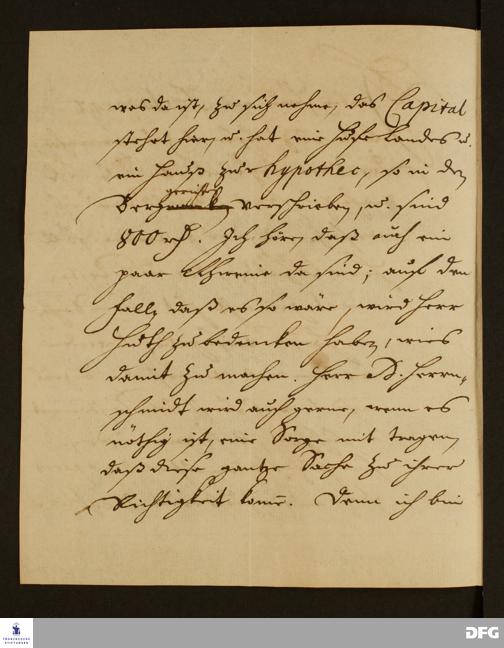 was da ist, zu sich nehme, das Capital
stehet hier, u. hat eine Hufe Landes u.
ein Hauß zur hypothec, so in den
verschrieben, u. sind
800 rth. Ich höre, daß auch ein
paar da sind; auf den
fall, daß es so wäre, wird Herr
Huth zu bedencken haben, wies
damit zu machen. Herr D. Herrn-
schmidt wird auch gerne, wenn es
nöthig ist, eine Sorge mit tragen,
daß diese gantze Sache zu ihrer
Richtigkeit kom̄e. Denn ich bin
FRANCKESCHE
STIFTUNGEN
DFG